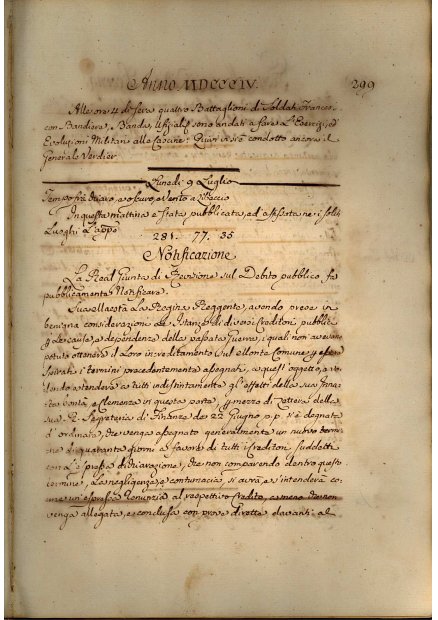 Anno MDCCCIV.
299
Alle ore 4 di sera quattro Battaglioni di Soldati Frances:
con Bandiera, Banda, Ufizali sono andati a fare l'Esercizio, ed
Evoluzioni Militari alle Cascine: Quivi si è condotto ancora il
Generale Verdier
Lunedì 9 Luglio
Tempo frà chiaro, e oscuro, e Vento a
In questa mattina è stata pubblicata, ed affissa ne i soliti
Luoghi L'app.
281. 77. 35
Notificazione
La Real Giunta di Revisione sul Debito pubblico fa
pubblicamente Notificare.
Sua Maestà La Regina Reggente, avendo prese in
benigna considerazione le Istanze di diversi Creditori pubblici
p Le cause, e dependenze della passata Guerra, i quali non avevano
potuto ottenere il Loro inscreditamento sul Monte Comune, p essere
spirati i termini precedentemente assegnati, a quest'oggetto, e vo-
lendo estendere a tutti indistintamente gl'effetti della sua Inna-
ta bontà, e clemenza in questa parte, p mezzo di Lettera della
sua R. Segreteria di Finanze de 22 Giugno p. p. s'è degnata
d'ordinare, che venga assegnato generalmente un nuovo termi-
ne di quaranta giorni a favore di tutti i Creditori suddetti
con L'espressa dichiarazione, che non comparendo dentro questo
termine, La negligenza, e contumacia, si avrà e s'intenderà co-
me un'espressa renunzia al respettivo Credito, a meno che non
venga allegata, e conclusa con prove dirette davanti al